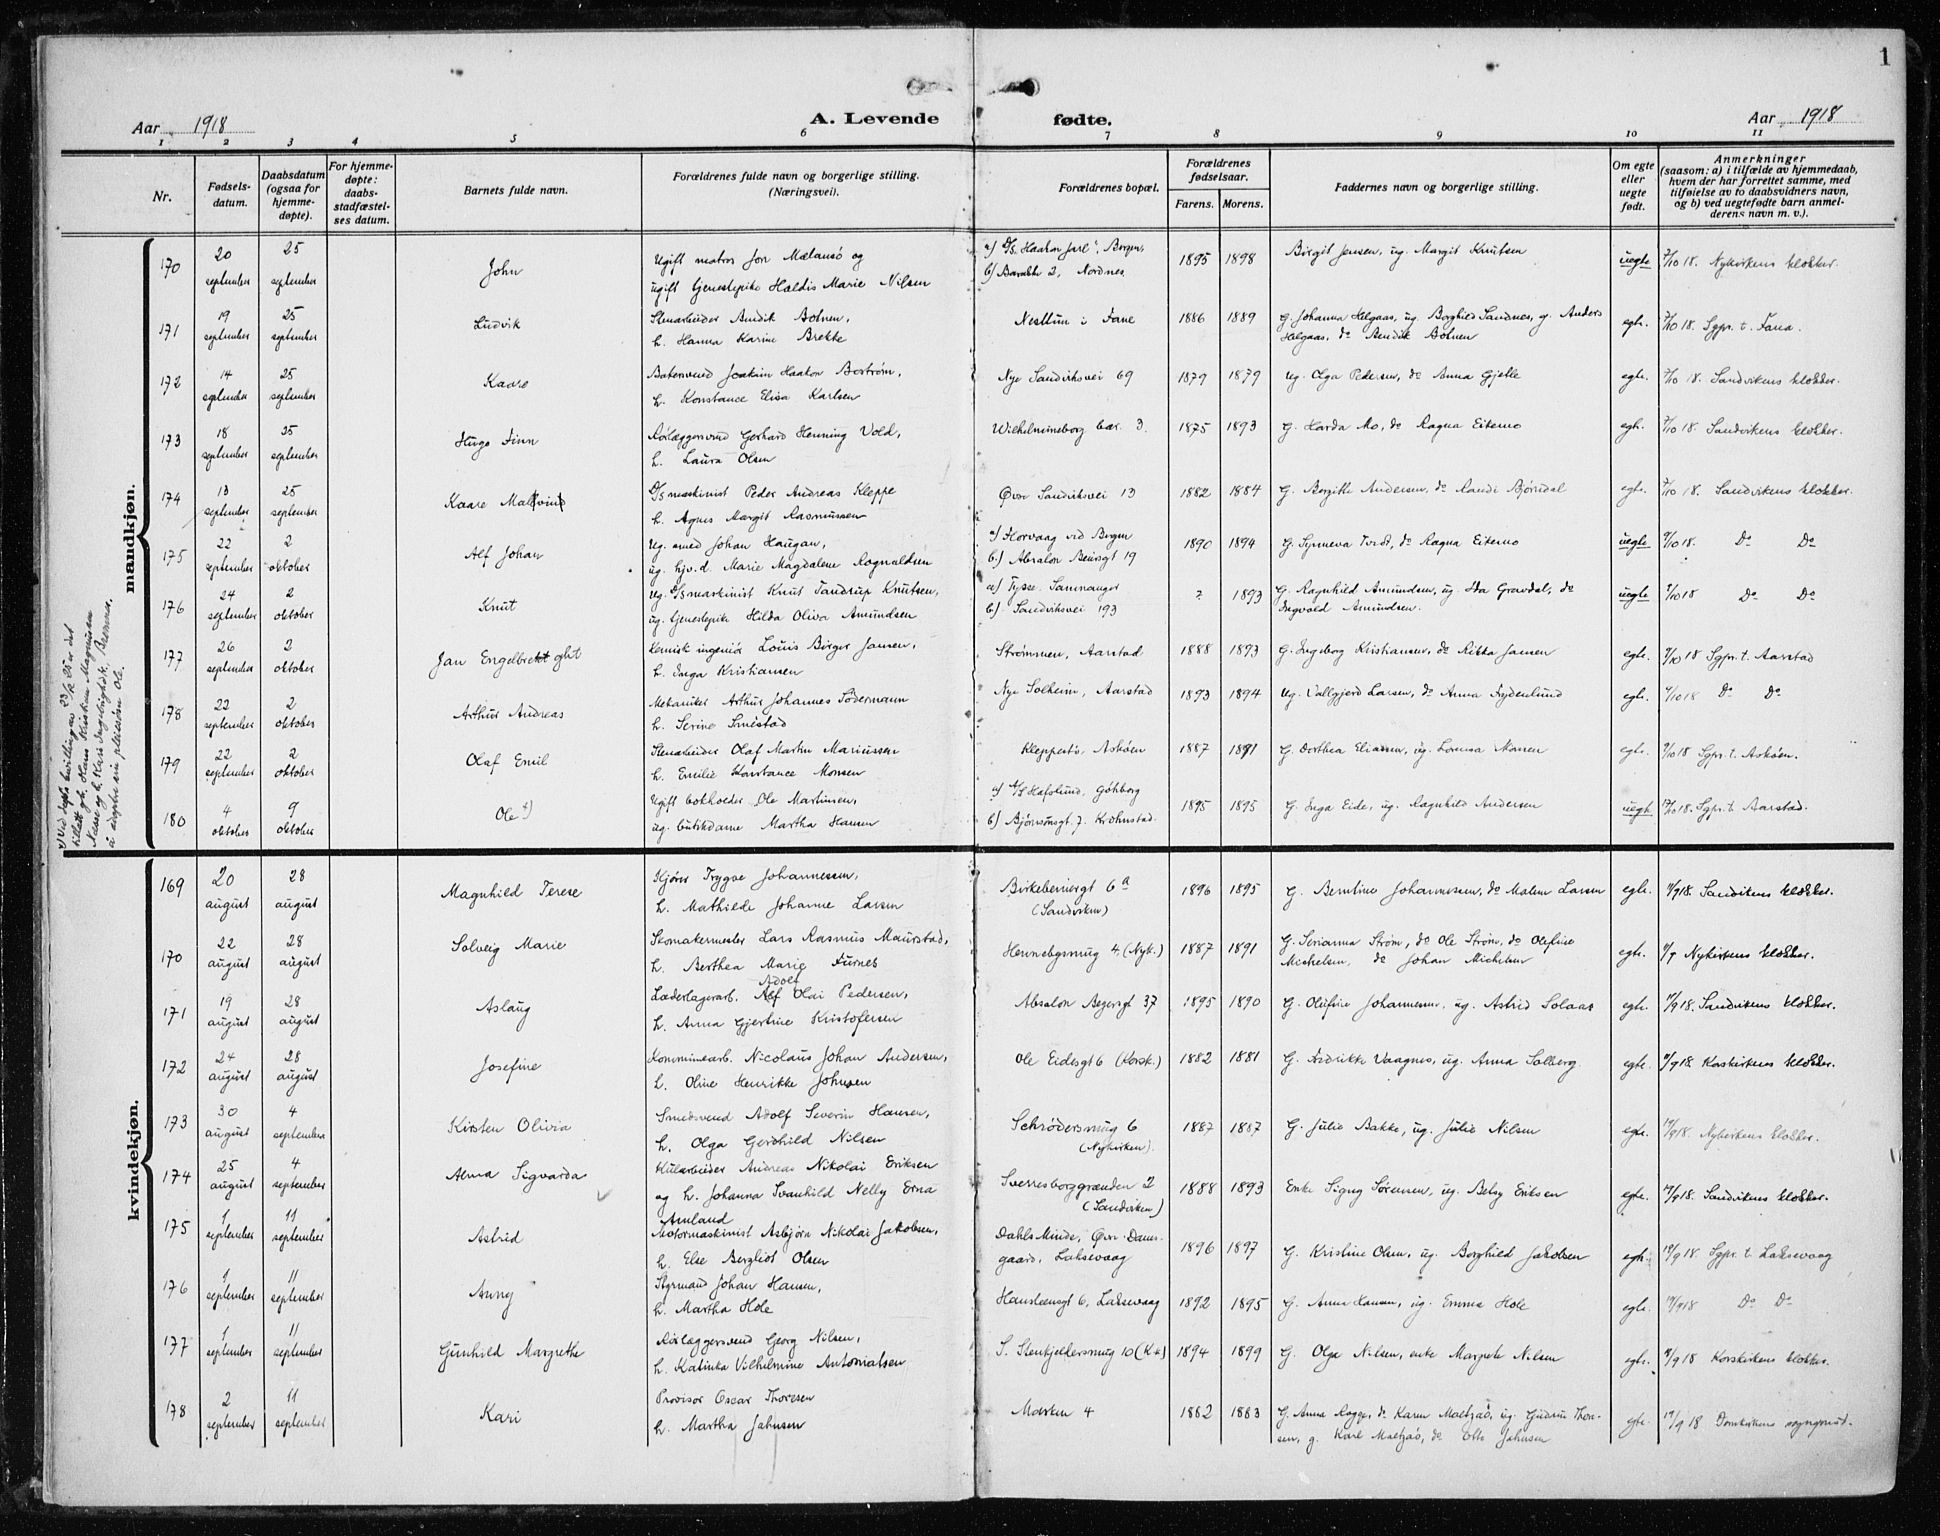 1
Aar 1918 A. Levende fødte. Aar 1918
1 2 3 4 5 6 7 8 9 10 11
Nr. Fødselsdatum. Daabsdatum (ogsaa for hjemmedøpte). For hjemmedøpte: daabsstadfæstelses datum. Barnets fulde navn. Forældrenes fulde navn og borgerlige stilling. (Næringsvei). Forældrenes bopæl. Forældrenes fødselsaar. Farens. Morens. Faddernes navn og borgerlige stilling. Om egte eller uegte født. Anmerkninger (saasom: a) i tilfælde av hjemmedaab, hvem der har forrettet samme, med tilføielse av to daabsvidners navn, og b) ved uegtefødte barn anmelderens navn m. v.).
mandkjøn.
170 20 september 25 september John Ugift matros Jon Mælansø og a) D/S. "Haakon Jarl", Bergen, 1895 1898 Birgit Jensen, ug. Margit Knutsen uegte 2/10 18. Nykirkens klokker.
ugift tjenestepike Hældis Marie Nilsen b) Barakke 2, Nordnes
171 19 september 25 september Ludvik Stenarbeider Bendik Bolnen, Nesttun i Fane 1886 1889 G. Johanna Helgaas, ug. Borghild Sandnes, g. Anders egte. 2/10 18. Sgpr. t. Fana.
h. Hanna Karine Brekke Helgaas, do Bendik Bolnen
172 14 september 25 september Kaare Bakersvend Joakim Haakon Boström, Nye Sandviksvei 69 1879 1879 Ug. Olga Pedersen, do Anna Gjelle egte. 2/10 18. Sandvikens klokker.
h. Konstance Elisa Karlsen
173 18 september 25 september Hugo Finn Rørlæggersvend Gerhard Henning Vold, Wilhelmineborg bar. 3. 1875 1893 G. Harda Mo, do Ragna Eitemo egte. 2/10 18. Sandvikens klokker.
h. Laura Olsen
174 13 september 25 september Kaare Malvin D/S maskinist Peder Andreas Kleppe Øvre Sandviksvei 13 1882 1884 G. Bergitte Andersen, do Randi Bjørndal egte. 2/10 18. Sandvikens klokker.
h. Agnes Margit Rasmussen
175 22 september 2 oktober Alf Johan Ug. smed Johan Haugan, a) Florvaag ved Bergen 1890 1894 G. Synneva Tvedt, do Ragna Eitemo uegte 9/10 18. Do Do
ug. hjv.d. Marie Magdalene Rognaldsen b.) Absalon Beiersgt 19
176 24 september 2 oktober Knut Ug. D/S maskinist Knut Tandrup Knutsen, a) Tysse. Samnanger ? 1893 G. Ragnhild Amundsen, ug. Ida Gravdal, do uegte 9/10 18 Do Do
ug. tjenestepike Hilda Oliva Amundsen b) Sandviksvei 193 Ingvald Amundsen.
177 26 september 2 oktober Jan Engelbreght Kemisk ingeniør Louis Birger Jansen, Strømmen, Aarstad 1888 1893 G. Ingeborg Kristiansen, do Rikka Jansen egte. 9/10 18 Sgpr. t. Aarstad
h. Inga Kristiansen
178 22 september 2 oktober Arthur Andreas Mekaniker Arthur Johannes Södermann Nye Solheim, Aarstad 1893 1894 Ug. Vallgjerd Larsen, do Anna Frydenlund egte. 9/10 18 Do Do
h. Serine Smistad
179 22 september 2 oktober Olaf Emil Stenarbeider Olaf Martin Mariussen Kleppestø, Askøen 1887 1891 G. Dorthea Eliassen, ug. Lovisa Monsen egte. 9/10 18. Sgpr. t. Askøen.
h. Emilie Konstance Monsen
180 4 oktober 9 oktober Ole x) Ugift bokholder Ole Martinsen, a) D/S Hafslund, Göteborg 1895 1895 G. Inga Eide, ug. Ragnhild Andersen uegte 17/10 18. Sgpr. t. Aarstad.
ug. butikdame Martha Hansen b) Bjørnsonsgt. 7. Krohnstad.
x) Ved depts bevilling av 23/12 25 er det
tillatt gb. Hans Kristian Magnussen
Næse og h. Kari Ingebrigtsdtr, Bremnes,
å adoptere sin pleiesønn Ole.
kvindekjøn.
169 20 august 28 august Magnhild Terese Kjører Trygve Johannessen, Birkebeinersgt 6a 1896 1895 G. Berntine Johannessen, do Malene Larsen egte. 11/9 18. Sandvikens klokker.
h. Mathilde Johanne Larsen (Sandviken)
170 22 august 28 august Solveig Marie Skomakermester Lars Rasmus Maurstad, Hennebysmug 4. (Nyk.) 1887 1891 G. Serianna Strøm, do Ole Strøm, do Olefine egte. 11/9 Nykirkens klokker.
h. Berthea Marie Furnes Michelsen, do Johan Michelsen
171 19 august 28 august Aslaug Læderlagerarb. Alf Adolf Olai Pedersen, Absalon Beyersgt 37 1895 1890 G. Olufine Johannesen, ug. Astrid Solaas egte. 11/9 18. Sandvikens klokker.
h. Anna Gjertine Kristofersen
172 24 august 28 august Josefine Kommunearb. Nicolaus Johan Andersen, Ole Eidesgt 6 (Korsk.) 1882 1881 G. Fredrikke Vaagnes, ug. Anna Solberg. egte. 11/9 18. Korskirkens klokker.
h. Oline Henrikke Johnsen
173 30 august 4 september Kirsten Olivia Smedsvend Adolf Severin Hansen, Schrödersmug 6 1887 1887 G. Julie Bakke, ug. Julie Nilsen egte. 14/9 18. Nykirkens klokker.
h. Olga Gerdhild Nilsen (Nykirken).
174 25 august 4 september Alma Sigvarda Kularbeider Andreas Nikolai Eriksen Sverresborggrænden 2 1888 1893 Enke Signy Sörensen, ug. Betsy Eriksen egte. 14/9 18. Sandvikens klokker.
og h. Johanna Svanhild Nelly Erna (Sandviken)
Amland
175 1 september 11 september Astrid Motormaskinist Asbjörn Nikolai Jakobsen, Dahls Minde, Øvre Damsgaard, Laksevaag 1896 1897 G. Kristine Olsen, ug. Borghild Jakobsen egte. 19/9 18. Sgpr. t. Laksevaag
h. Else Bergliot Olsen
176 1 september 11 september Anny Styrmand Johan Hansen, Hansteensgt 6, Laksevaag 1892 1895 G. Anna Hansen, ug. Emma Hole egte. 19/9 18 Do Do
h. Martha Hole
177 1 september 11 september Gunhild Margrethe Rørlæggersvend Georg Nilsen, S. Stenkjeldersmug 10 (K.k) 1894 1899 G. Olga Nilsen, enke Margrete Nilsen egte. 18/9 18 Korskirkens klokker.
h. Katinka Vilhelmine Antoniatsen
178 2 september 11 september Kari Provisor Oscar Thoresen Marken 4 1882 1883 G. Anna Rogge, do Karen Maltzaö, ug. Gudrun Thoresen, g. Karl Maltzaö, do Otto Jahnsen egte. 19/9 18. Domkirkens sogneprest.
h. Martha Jahnsen